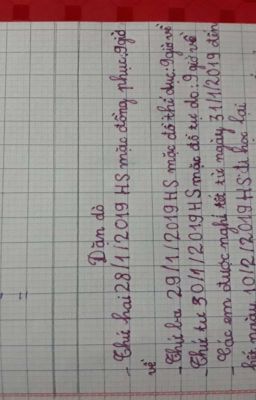 Dặn dò
- Thứ hai 28/1/2019 HS mặc đồng phục: 9giờ
về
- Thứ ba 29/1/2019 HS mặc đồ thể dục: 9giờ về
- Thứ tư 30/1/2019 HS mặc đồ tự do: 9giờ về
- Các em được nghỉ tết từ ngày 31/1/2019 đến
hết ngày 10/2/2019 HS đi học lại